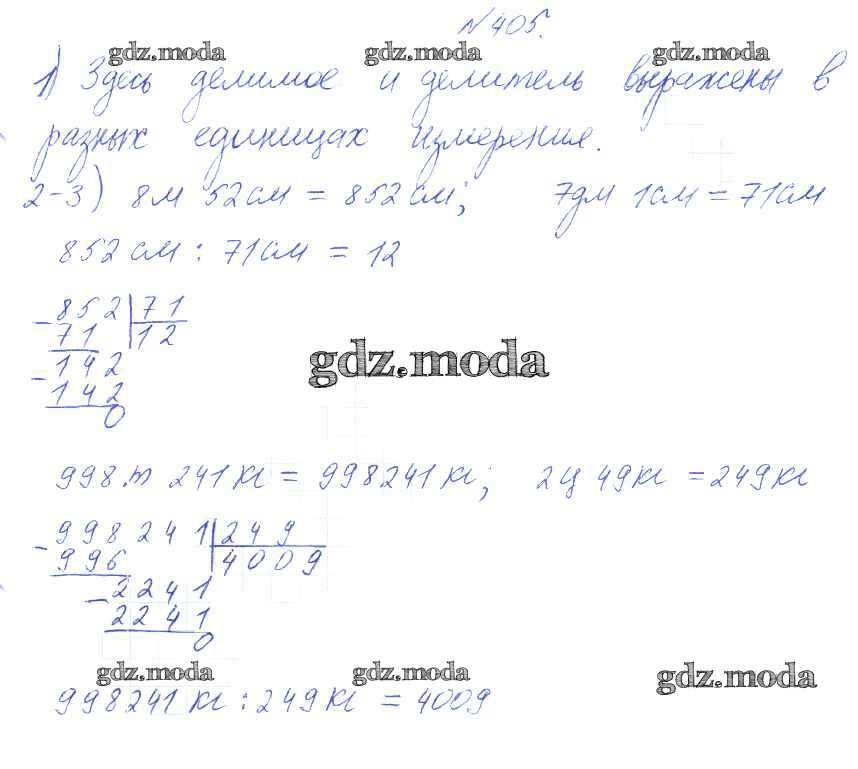 №405.
gdz.moda gdz.moda gdz.moda
1) Здесь делимое и делитель выражены в
разных единицах измерения.
2-3) 8м 52см = 852см; 7дм 1см = 71см
852см : 71см = 12
- 852 | 71
71 | 12
- 142
142
0
gdz.moda
998т 241кг = 998241кг; 2ц 49кг = 249кг
- 998241 | 249
996 | 4009
- 2241
2241
0
gdz.moda gdz.moda gdz.moda
998241кг : 249кг = 4009